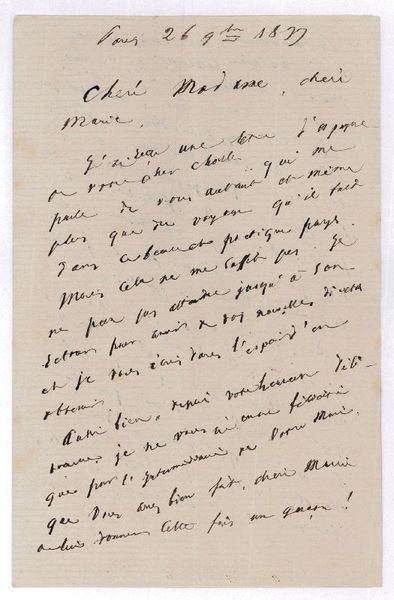 26 9bre 1877
Cheré Madame, cheré
Marie,
J'ai reçu une lettre d'Espagne
de votre cher Charles qui me
parle de vous autant et même
plus que du voyage qu'il fait
dans ce beau et poétique pays.
Mais cela ne me suffit pas. Je
ne peux pas attendre jusqu'à son
retour pour avoir de vos nouvelles directes
et je vous écris dans l'espoir d'en
obtenir.
Aussi bien, depuis votre heureuse déli-
vrance, je ne vous ai encore félicitée
que par l'intermédiaire de votre Mari,
que vous avez bien fait, cheré Marie
de lui donner cette fois un garçon!